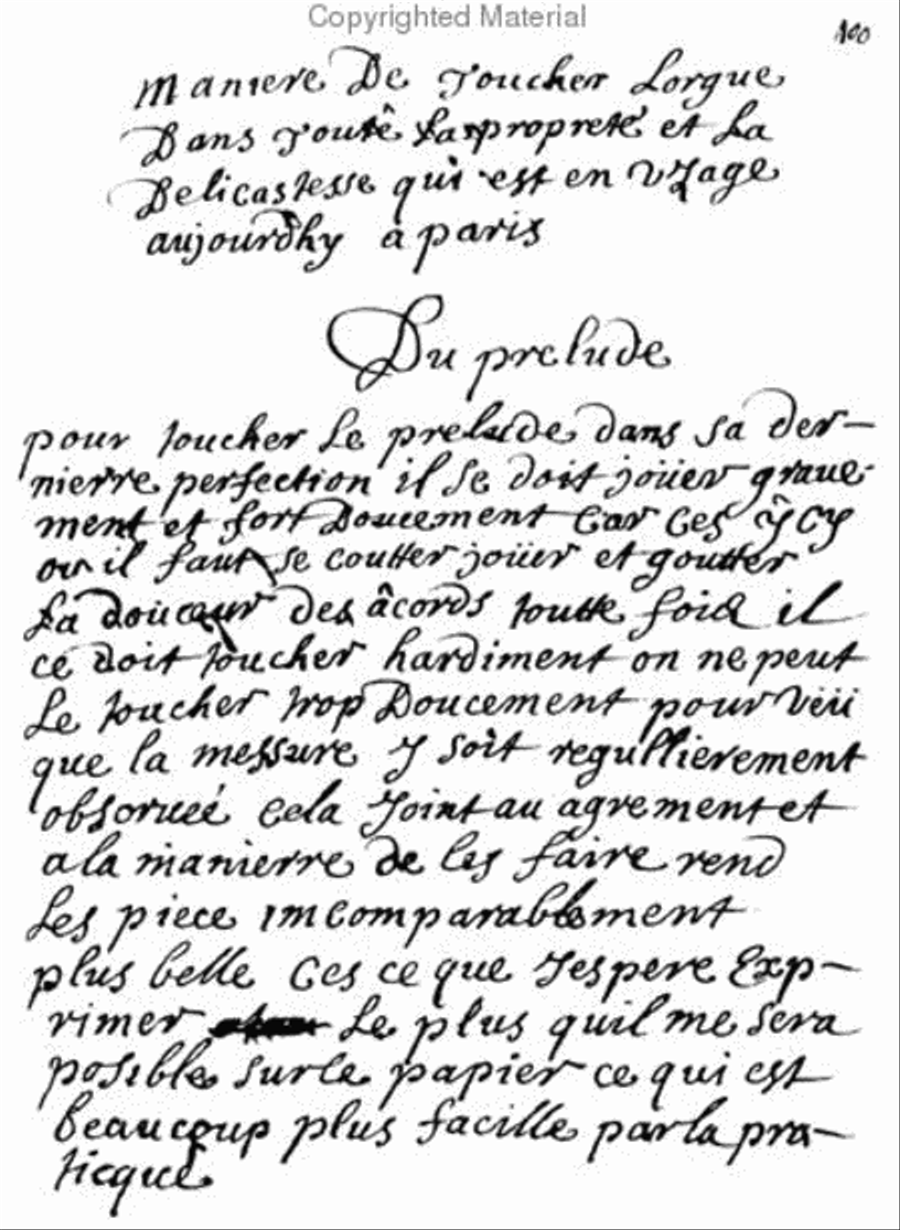 Copyrighted Material
100
Maniere De Toucher Lorgue
Dans Toutê La propreté et La
Delicastesse qui est en Vzage
aujourdhy a paris
Du prelude
pour toucher Le prelude dans sa der-
nierre perfection il se doit joüer graue-
ment et fort Doucement Car Ces ŷ cy
ou il faut se coutter joüir et goutter
La douceur des âcords toutte fois il
ce doit toucher hardiment on ne peut
Le toucher trop Doucement pour Veü
que la messure y soit regullierement
obseruéé Cela Joint au agrement et
a la manierre de les faire rend
Les piece Imcomparablement
plus belle Ces ce que Jespere Exp-
rimer Le plus quil me sera
posible sur le papier ce qui est
beaucoup plus facille par la pra-
ticque.